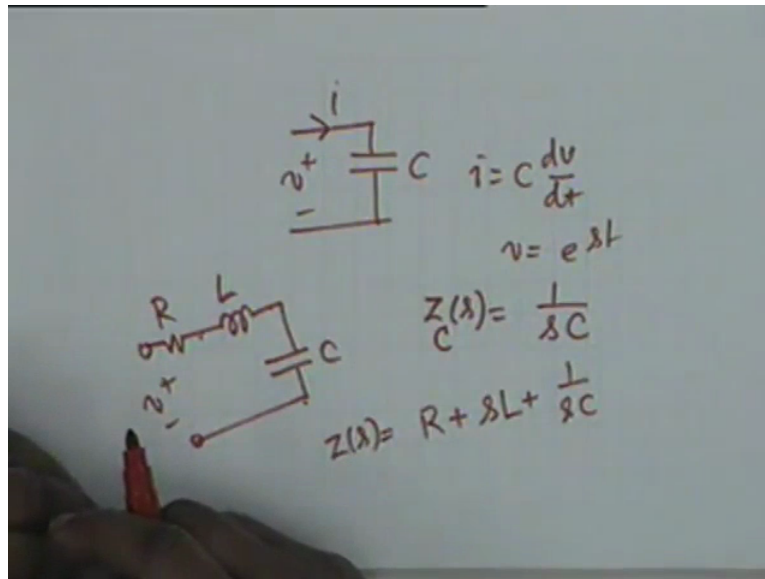 i
v + - C i = C dv/dt
v = e^st
R L C
Z_C(s) = 1/sC
v + -
Z(s) = R + sL + 1/sC